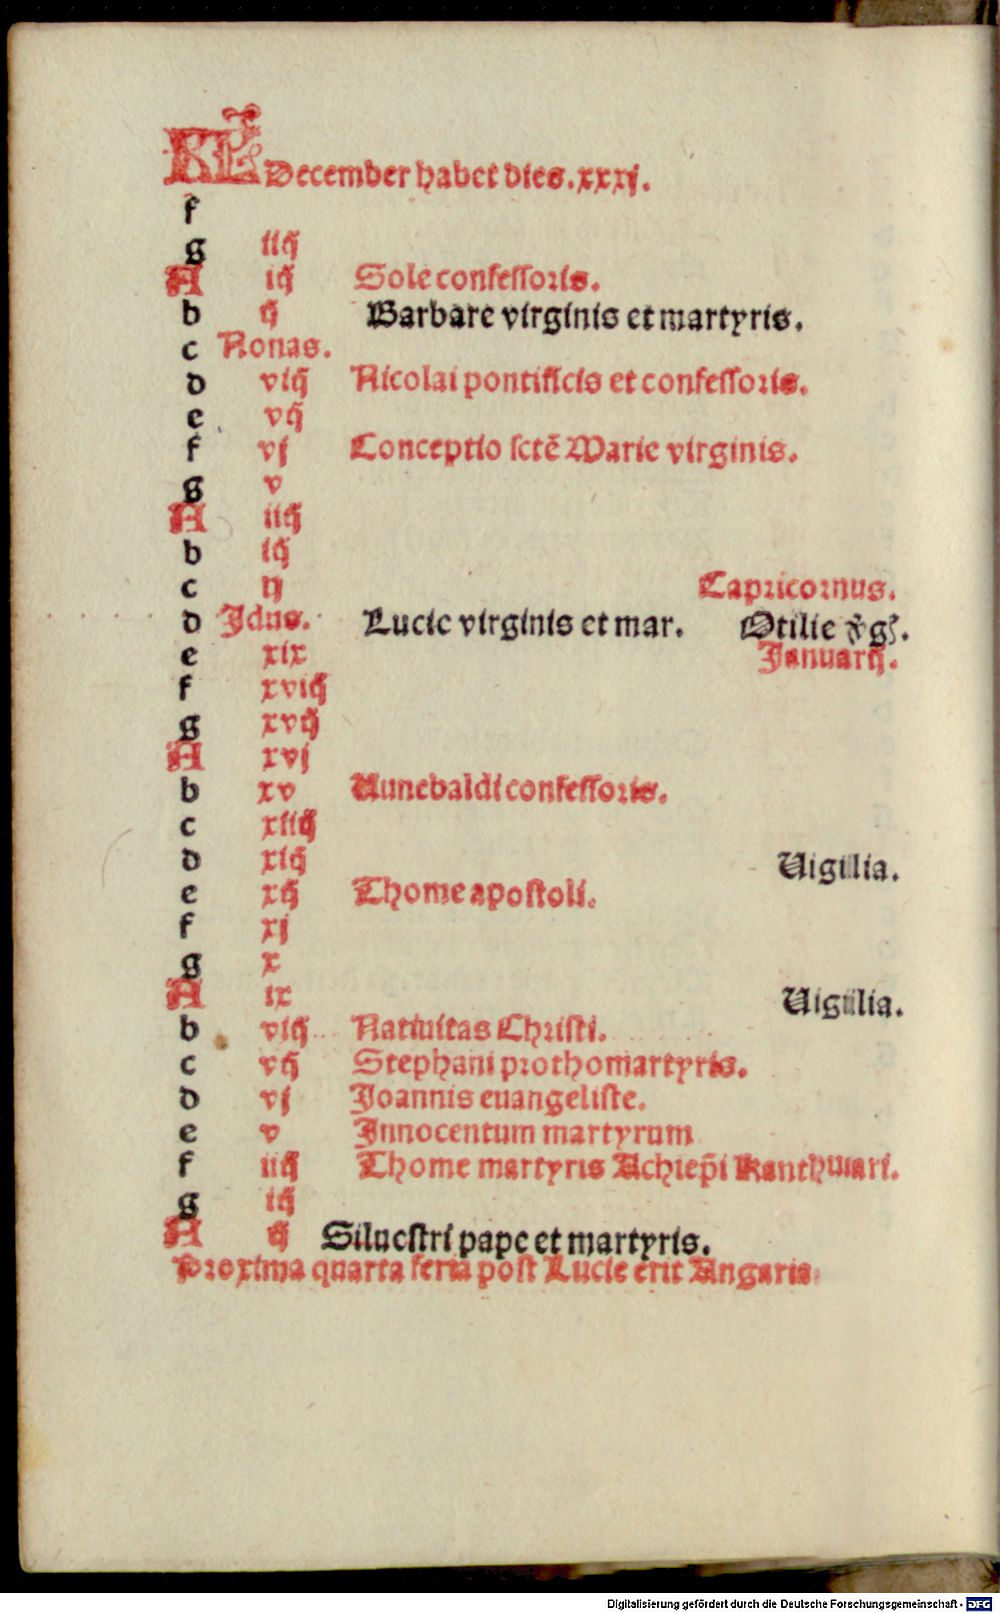 KL December habet dies.xxxj.
f
g iiij
A iij Sole confessoris.
b ij Barbare virginis et martyris.
c Nonas.
d viij Nicolai pontificis et confessoris.
e vij
f vj Conceptio sctē Marie virginis.
g v
A iiij
b iij
c ij Capricornus.
d Jdus. Lucie virginis et mar. Otilie vgs.
e xix Januarij.
f xviij
g xvij
A xvj
b xv Uunebaldi confessoris.
c xiiij
d xiij Uigilia.
e xij Thome apostoli.
f xj
g x
A ix Uigilia.
b viij Natiuitas Christi.
c vij Stephani prothomartyris.
d vj Joannis euangeliste.
e v Jnnocentum martyrum
f iiij Thome martyris Achiep̄i Kanthuuari.
g iij
A ij Siluestri pape et martyris.
Proxima quarta feria post Lucie erit Angaria.
Digitalisierung gefördert durch die Deutsche Forschungsgemeinschaft - DFG